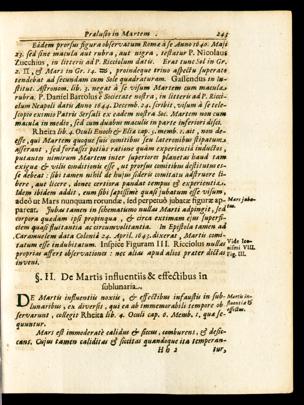 Prælusio in Martem. 243
Eâdem prorsus figura observatum Romæ à se Anno 1640. Maji
23. sed sine macula aut rubra, aut nigra, testatur P. Nicolaus
Zucchius, in litteris ad P. Ricciolum datis. Erat tunc Sol in Gr.
2. ♊, & Mars in Gr. 14. ♒, proindeque trino aspectu superato
tendebat ad secundum cum Sole quadratum. Gassendus in In-
stitut. Astronom. lib. 3. negat à se visum Martem cum macula
rubra. P. Daniel Bartolus è Societate nostra, in litteris ad P. Ricci-
olum Neapoli datis Anno 1644. Decemb. 24. scribit, visum à se tele-
scopio eximio Patris Sersalis ex eadem nostra Soc. Martem non cum
macula in medio, sed cum duabus maculis in parte inferiori disci.
Rheita lib. 4. Oculi Enoch & Eliæ cap. 3. memb. 1. ait, non de-
esse, qui Martem quoque suis comitibus seu lateronibus stipatum
asserant, sed forsasse potius ratione quàm experientia inductos,
putantes nimirum Martem inter superiores planetas haud tam
exiguæ & vilis conditionis esse, ut prorsus comitibus destitutus es-
se debeat: sibi tamen nihil de hujus sideris comitatu adstruere li-
bere, aut licere, donec certiora pandat tempus & experientia.
Idem ibidem addit, eum sibi sæpissime quasi jubatum esse visum,
adeò ut Mars nunquam rotundæ, sed perpetuò jubatæ figuræ ap-
pareat. Jubæ tamen in schematismo nullas Marti adpingit, sed
corpora quædam ipsi propinqua, & circa extimam ejus superfi-
ciem quasi fluitantia ac circumvolitantia. In Epistola tamen ad
Caramuëlem data Coloniâ 24. April. 1643. diverat, Martis comi-
tatum esse indubitatum. Inspice Figuram III. Ricciolus nullas
proprias affert observationes: nec alias apud alios præter dictas
inveni.
Mars juba-
tus.
Vide Ico-
nismi VIII.
Fig. III.
§. II. De Martis influentiis & effectibus in
sublunaria.
DE Martis influentiis noxiis, & effectibus infaustis in sub-
lunaribus, ex diversis, qui ea ab immemorabili tempore ob
servarunt, collegit Rheita lib. 4. Oculi cap. 6. Memb. 1, qua se-
quuntur.
Martis in-
fluentiæ &
effectus.
Mars est immoderatè calidus & siccus, comburens, & desic-
cans. Cujus tamen caliditas & siccitas quandoque ita temperan-
Hh 2 tur,